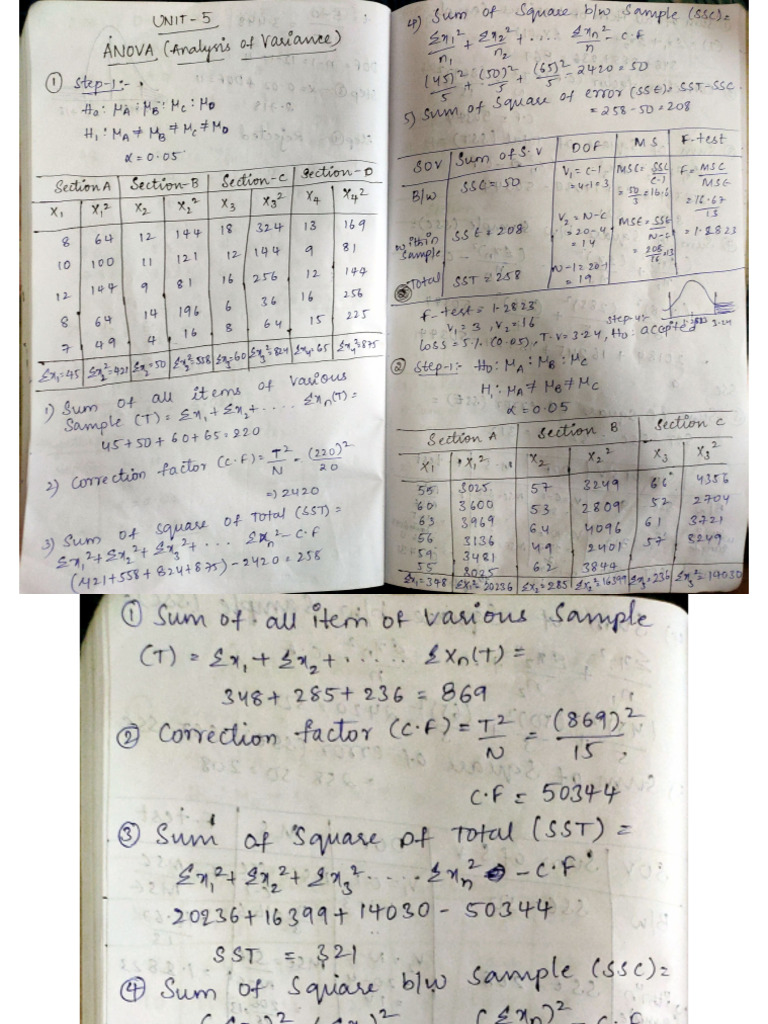 UNIT-5
ANOVA (Analysis of Variance)
① Step-1:-
H₀ : μA : μB : μC : μD
H₁ : μA ≠ μB ≠ μC ≠ μD
α = 0.05
Section A Section-B Section-C Section-D
X₁ X₁² X₂ X₂² X₃ X₃² X₄ X₄²
8 64 12 144 18 324 13 169
10 100 11 121 12 144 9 81
12 144 9 81 16 256 12 144
8 64 14 196 6 36 16 256
7 49 4 16 8 64 15 225
Σx₁=45 Σx₁²=421 Σx₂=50 Σx₂²=558 Σx₃=60 Σx₃²=824 Σx₄=65 Σx₄²=875
1) Sum of all items of various
Sample (T) = Σx₁ + Σx₂ + ..... Σxn(T) =
45+50+60+65=220
2) Correction factor (C.F) = T²/N = (220)²/20
=) 2420
3) Sum of square of Total (SST) =
Σx₁² + Σx₂² + Σx₃² + ... Σxn² - C.F
(421+558+824+875) - 2420 = 258
4) Sum of Square b/w Sample (SSC) =
Σx₁²/n₁ + Σx₂²/n₂ + ... Σxn²/n - C.F
(45)²/5 + (50)²/5 + (65)²/5 - 2420 = 50
5) Sum of Square of error (SSE) = SST-SSC
= 258-50 = 208
SOV Sum of S.V DOF MS F-test
B/w SSC = 50 V₁ = C-1 = 4-1=3 MSC = SSC/C-1 = 50/3 = 16.6 F = MSC/MSE = 16.67/13 = 1.2823
Within Sample SSE = 208 V₂ = N-C = 20-4 = 14 MSE = SSE/N-C = 208/16 = 13
Total SST = 258 N-1 = 20-1 = 19
F-test = 1.2823
V₁ = 3, V₂ = 16 Step-4:-
Loss = 5% (0.05), T.V = 3.24, H₀ : accepted
3.24
② Step-1:- H₀ : μA : μB : μC
H₁ : μA ≠ μB ≠ μC
α = 0.05
Section A Section B Section C
X₁ X₁² X₂ X₂² X₃ X₃²
55 3025 57 3249 66 4356
60 3600 53 2809 52 2704
63 3969 64 4096 61 3721
56 3136 49 2401 57 8249
59 3481 62 3844
55 3025
Σx₁=348 Σx₁²=20236 Σx₂=285 Σx₂²=16399 Σx₃=236 Σx₃²=14030
① Sum of all item of various Sample
(T) = Σx₁ + Σx₂ + ..... Σxn(T) =
348 + 285 + 236 = 869
② Correction factor (C.F) = T²/N = (869)²/15
C.F = 50344
③ Sum of Square of Total (SST) =
Σx₁² + Σx₂² + Σx₃² ..... Σxn² - C.F
20236 + 16399 + 14030 - 50344
SST = 321
④ Sum of Square b/w Sample (SSC) =